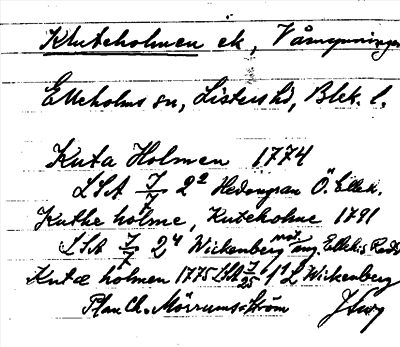 Kluteholmen ek, Våmspringer
Elleholms sn, Listers hd, Blek. l.
Kuta Holmen 1774
LSA 7/7 2² Hedengran Ö. Ellek.
Kuthe holme, Kuteholme 1791
LSA 7/7 2⁴ Wickenberg mot ing. Ellek:s
Kutæ holmen 1775 LSA 7/25 1¹ L Wickenberg
Plan Ch. Mörrums-ström